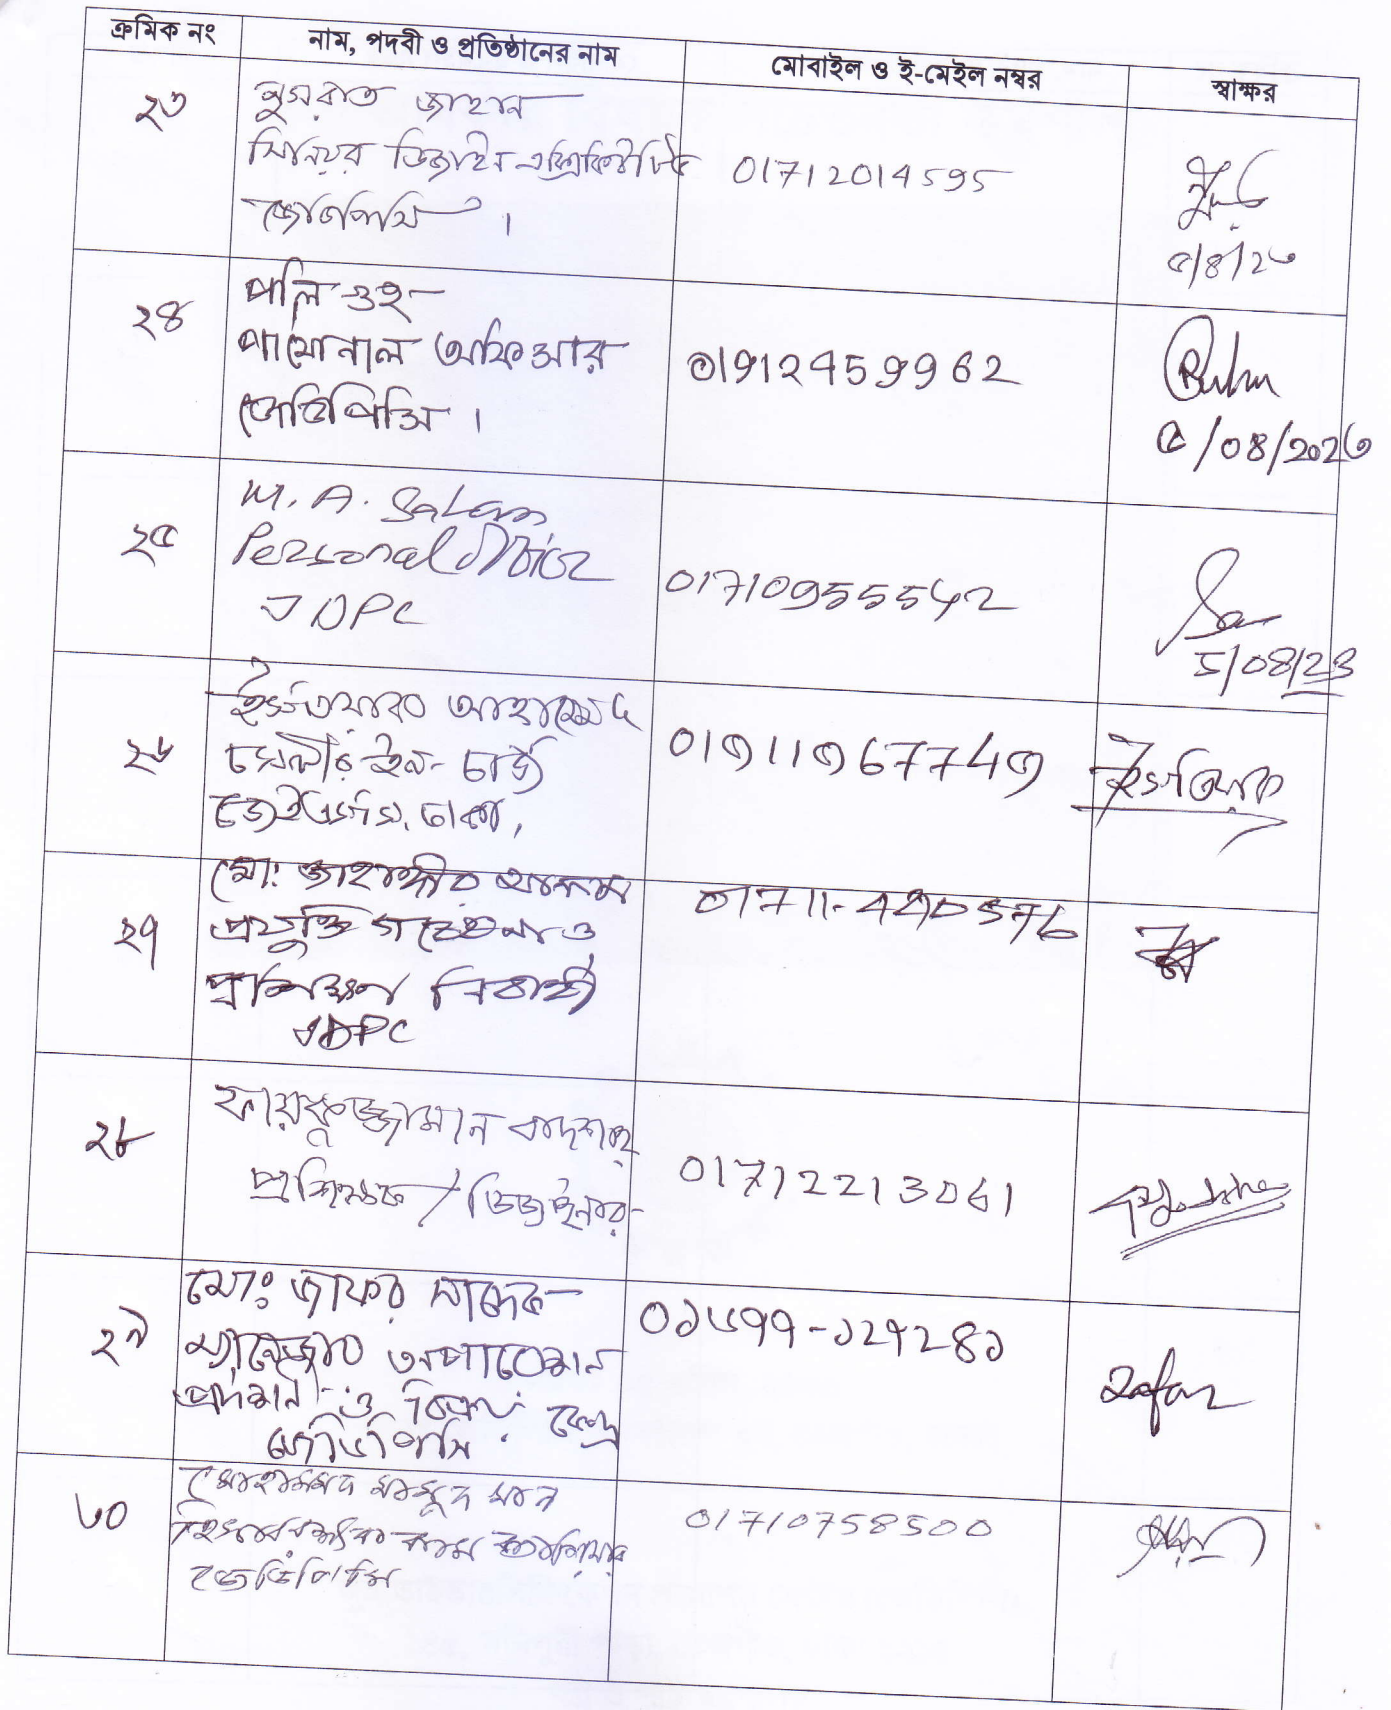 ক্রমিক নং
নাম, পদবী ও প্রতিষ্ঠানের নাম
মোবাইল ও ই-মেইল নম্বর
স্বাক্ষর
২৩
নুসরাত জাহান
সিনিয়র ডিজাইন এক্সিকিউটিভ
জেডিপিসি।
01712014595
৫/৪/২৩
২৪
পলি গুহ
পার্সোনাল অফিসার
জেডিপিসি।
01912459962
৫/08/2023
২৫
M. A. Salam
Personal Officer
JDPC
01710955542
5/08/23
২৬
ইসতিয়াক আহামেদ
সেলস ইন-চার্জ
ঢাকা,
01911967749
ইসতিয়াক
২৭
মো: জাহাঙ্গীর আলম
প্রযুক্তি গবেষনা ও
প্রশিক্ষণ নির্বাহী
JDPC
২৮
বাদশাহ্
প্রশিক্ষক / ডিজাইনার
01712213061
২৯
মোঃ জাফর সাদেক
ম্যানেজার অপারেশন
প্রদর্শনী ও বিক্রয় কেন্দ্র
জেডিপিসি
Zafar
৩০
মোহাম্মদ মাসুদ
হিসাবরক্ষক কাম ক্যাশিয়ার
জেডিপিসি
01710758500